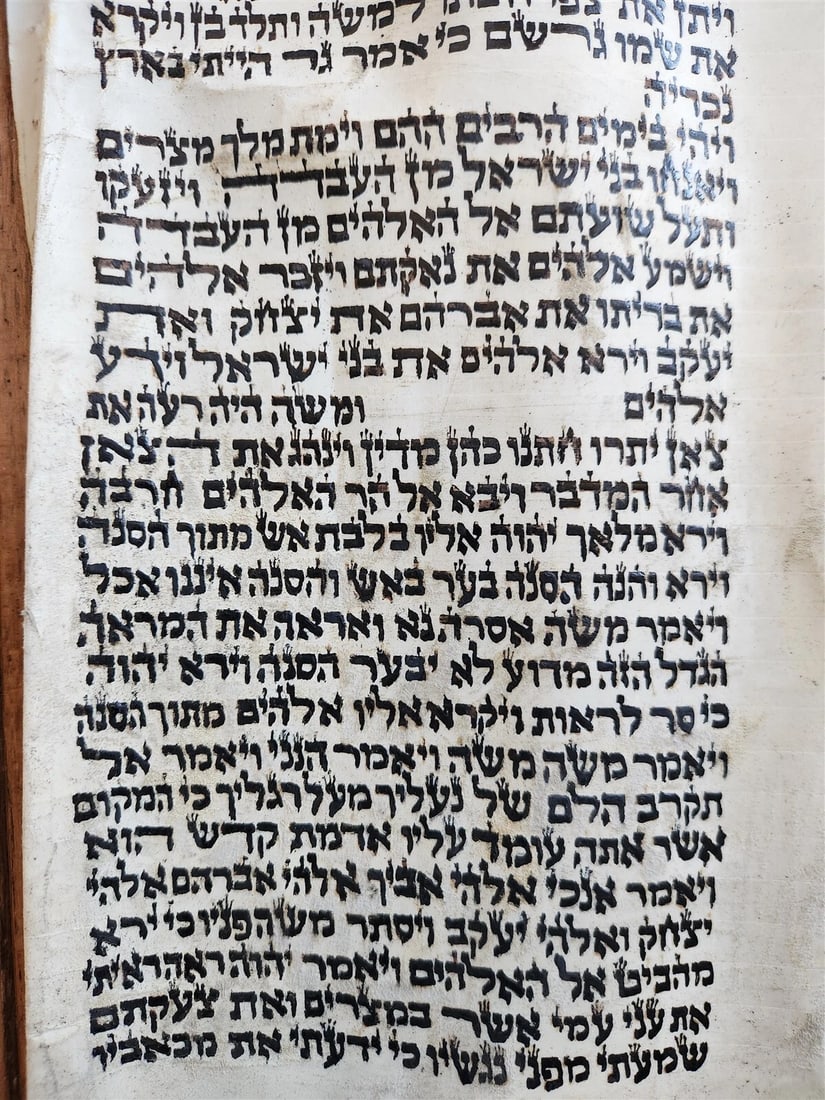 ויתן את צפרה בתו למשה ותלד בן ויקרא
את שמו גרשם כי אמר גר הייתי בארץ
נכריה
ויהי בימים הרבים ההם וימת מלך מצרים
ויאנחו בני ישראל מן העבדה ויזעקו
ותעל שועתם אל האלהים מן העבדה
וישמע אלהים את נאקתם ויזכר אלהים
את בריתו את אברהם את יצחק ואת
יעקב וירא אלהים את בני ישראל וידע
אלהים ומשה היה רעה את
צאן יתרו חתנו כהן מדין וינהג את הצאן
אחר המדבר ויבא אל הר האלהים חרבה
וירא מלאך יהוה אליו בלבת אש מתוך הסנה
וירא והנה הסנה בער באש והסנה איננו אכל
ויאמר משה אסרה נא ואראה את המראה
הגדל הזה מדוע לא יבער הסנה וירא יהוה
כי סר לראות ויקרא אליו אלהים מתוך הסנה
ויאמר משה משה ויאמר הנני ויאמר אל
תקרב הלם של נעליך מעל רגליך כי המקום
אשר אתה עומד עליו אדמת קדש הוא
ויאמר אנכי אלהי אביך אלהי אברהם אלהי
יצחק ואלהי יעקב ויסתר משה פניו כי ירא
מהביט אל האלהים ויאמר יהוה ראה ראיתי
את עני עמי אשר במצרים ואת צעקתם
שמעתי מפני נגשיו כי ידעתי את מכאביו